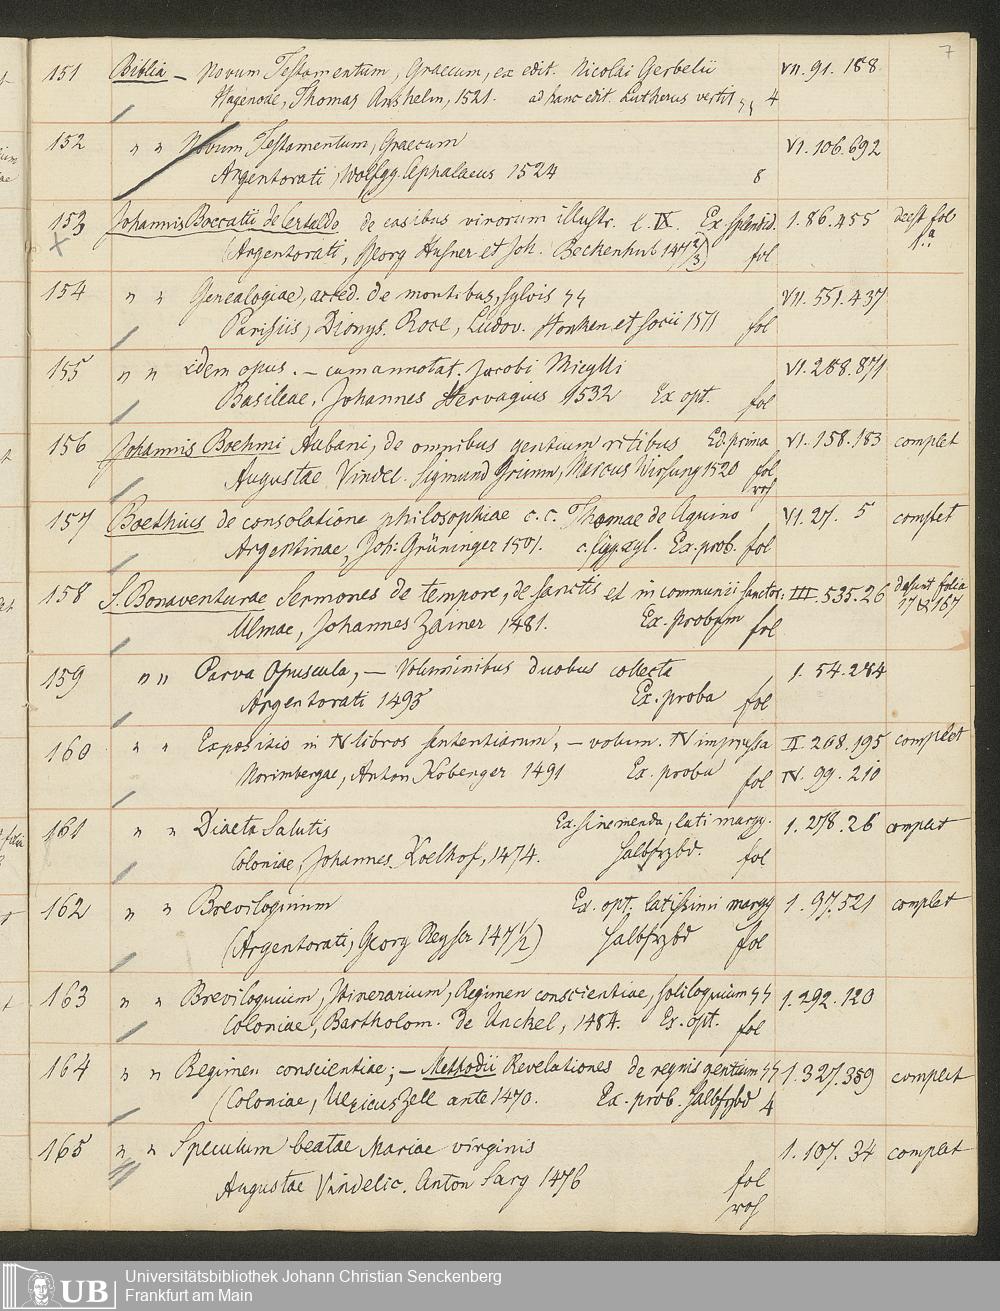 7
151 Biblia – Novum Testamentum, Graecum, ex edit. Nicolai Gerbelii VII. 91. 188
Hagenoae, Thomas Anshelm, 1521. ad hanc edit. Lutherus vertit 4
152 " " Novum Testamentum, Graecum VI. 106. 692
Argentorati, Wolfgg. Cephalaeus 1524 8
153 Johannis Boccatii de Certaldo de casibus virorum illustr. l. IX. Ex. splendid. 1. 86. 455 deest fol
x (Argentorati, Georg Husner et Joh. Beckenhub 147 2/3) fol 1.a
154 " " Genealogiae, acced. de montibus, sylvis VII. 551. 437
Parisiis, Dionys. Roce, Ludov. Hornken et socii 1511 fol
155 " " idem opus. – cum annotat. Jacobi Micylli VI. 288. 871
Basileae, Johannes Hervagius 1532 Ex opt. fol
156 Johannis Boehmi Aubani, de omnibus gentium ritibus Ed. prima VI. 158. 183 complet
Augustae Vindel. Sigmund Grimm, Marcus Wirsung 1520 fol
roh
157 Boethius de consolatione philosophiae c. c. Thomae de Aquino VI. 27. 5 complet
Argentinae, Joh: Grüninger 1501. c. figg. xyl. Ex. prob. fol
158 S. Bonaventurae Sermones de tempore, de sanctis et in communi sanctor. III. 535. 26 desunt folia
Ulmae, Johannes Zainer 1481. Ex. probum fol 17 & 167
159 " " Parva Opuscula, – Voluminibus duobus collecta 1. 54. 284
Argentorati 1495 Ex. proba fol
160 " " Expositio in IV libros sententiarum, – volum. IV impressa II. 268. 195 complect
Norimbergae, Anton Koberger 1491 Ex. proba fol IV. 99. 210
161 " " Diaeta Salutis Ex. sine menda, lati margg. 1. 278. 26 complect
Coloniae, Johannes Koelhof, 1474. halbfrzbd. fol
162 " " Breviloquium Ex. opt. latissimi margg 1. 97. 521 complet
(Argentorati, Georg Reyser 147 1/2) halbfrzbd fol
163 " " Breviloquium, Itinerarium, Regimen conscientiae, soliloquium 1. 292. 120
Coloniae, Bartholom. de Unckel, 1484. Ex. opt. fol
164 " " Regimen conscientiae; – Methodii Revelationes de regnis gentium 1. 327. 359 complect
(Coloniae, Ulricus Zell ante 1470. Ex. prob. halbfrzbd 4
165 " " Speculum beatae Mariae virginis 1. 107. 34 complect
Augustae Vindelic. Anton Sorg 1476 fol
roh
UB
Universitätsbibliothek Johann Christian Senckenberg
Frankfurt am Main